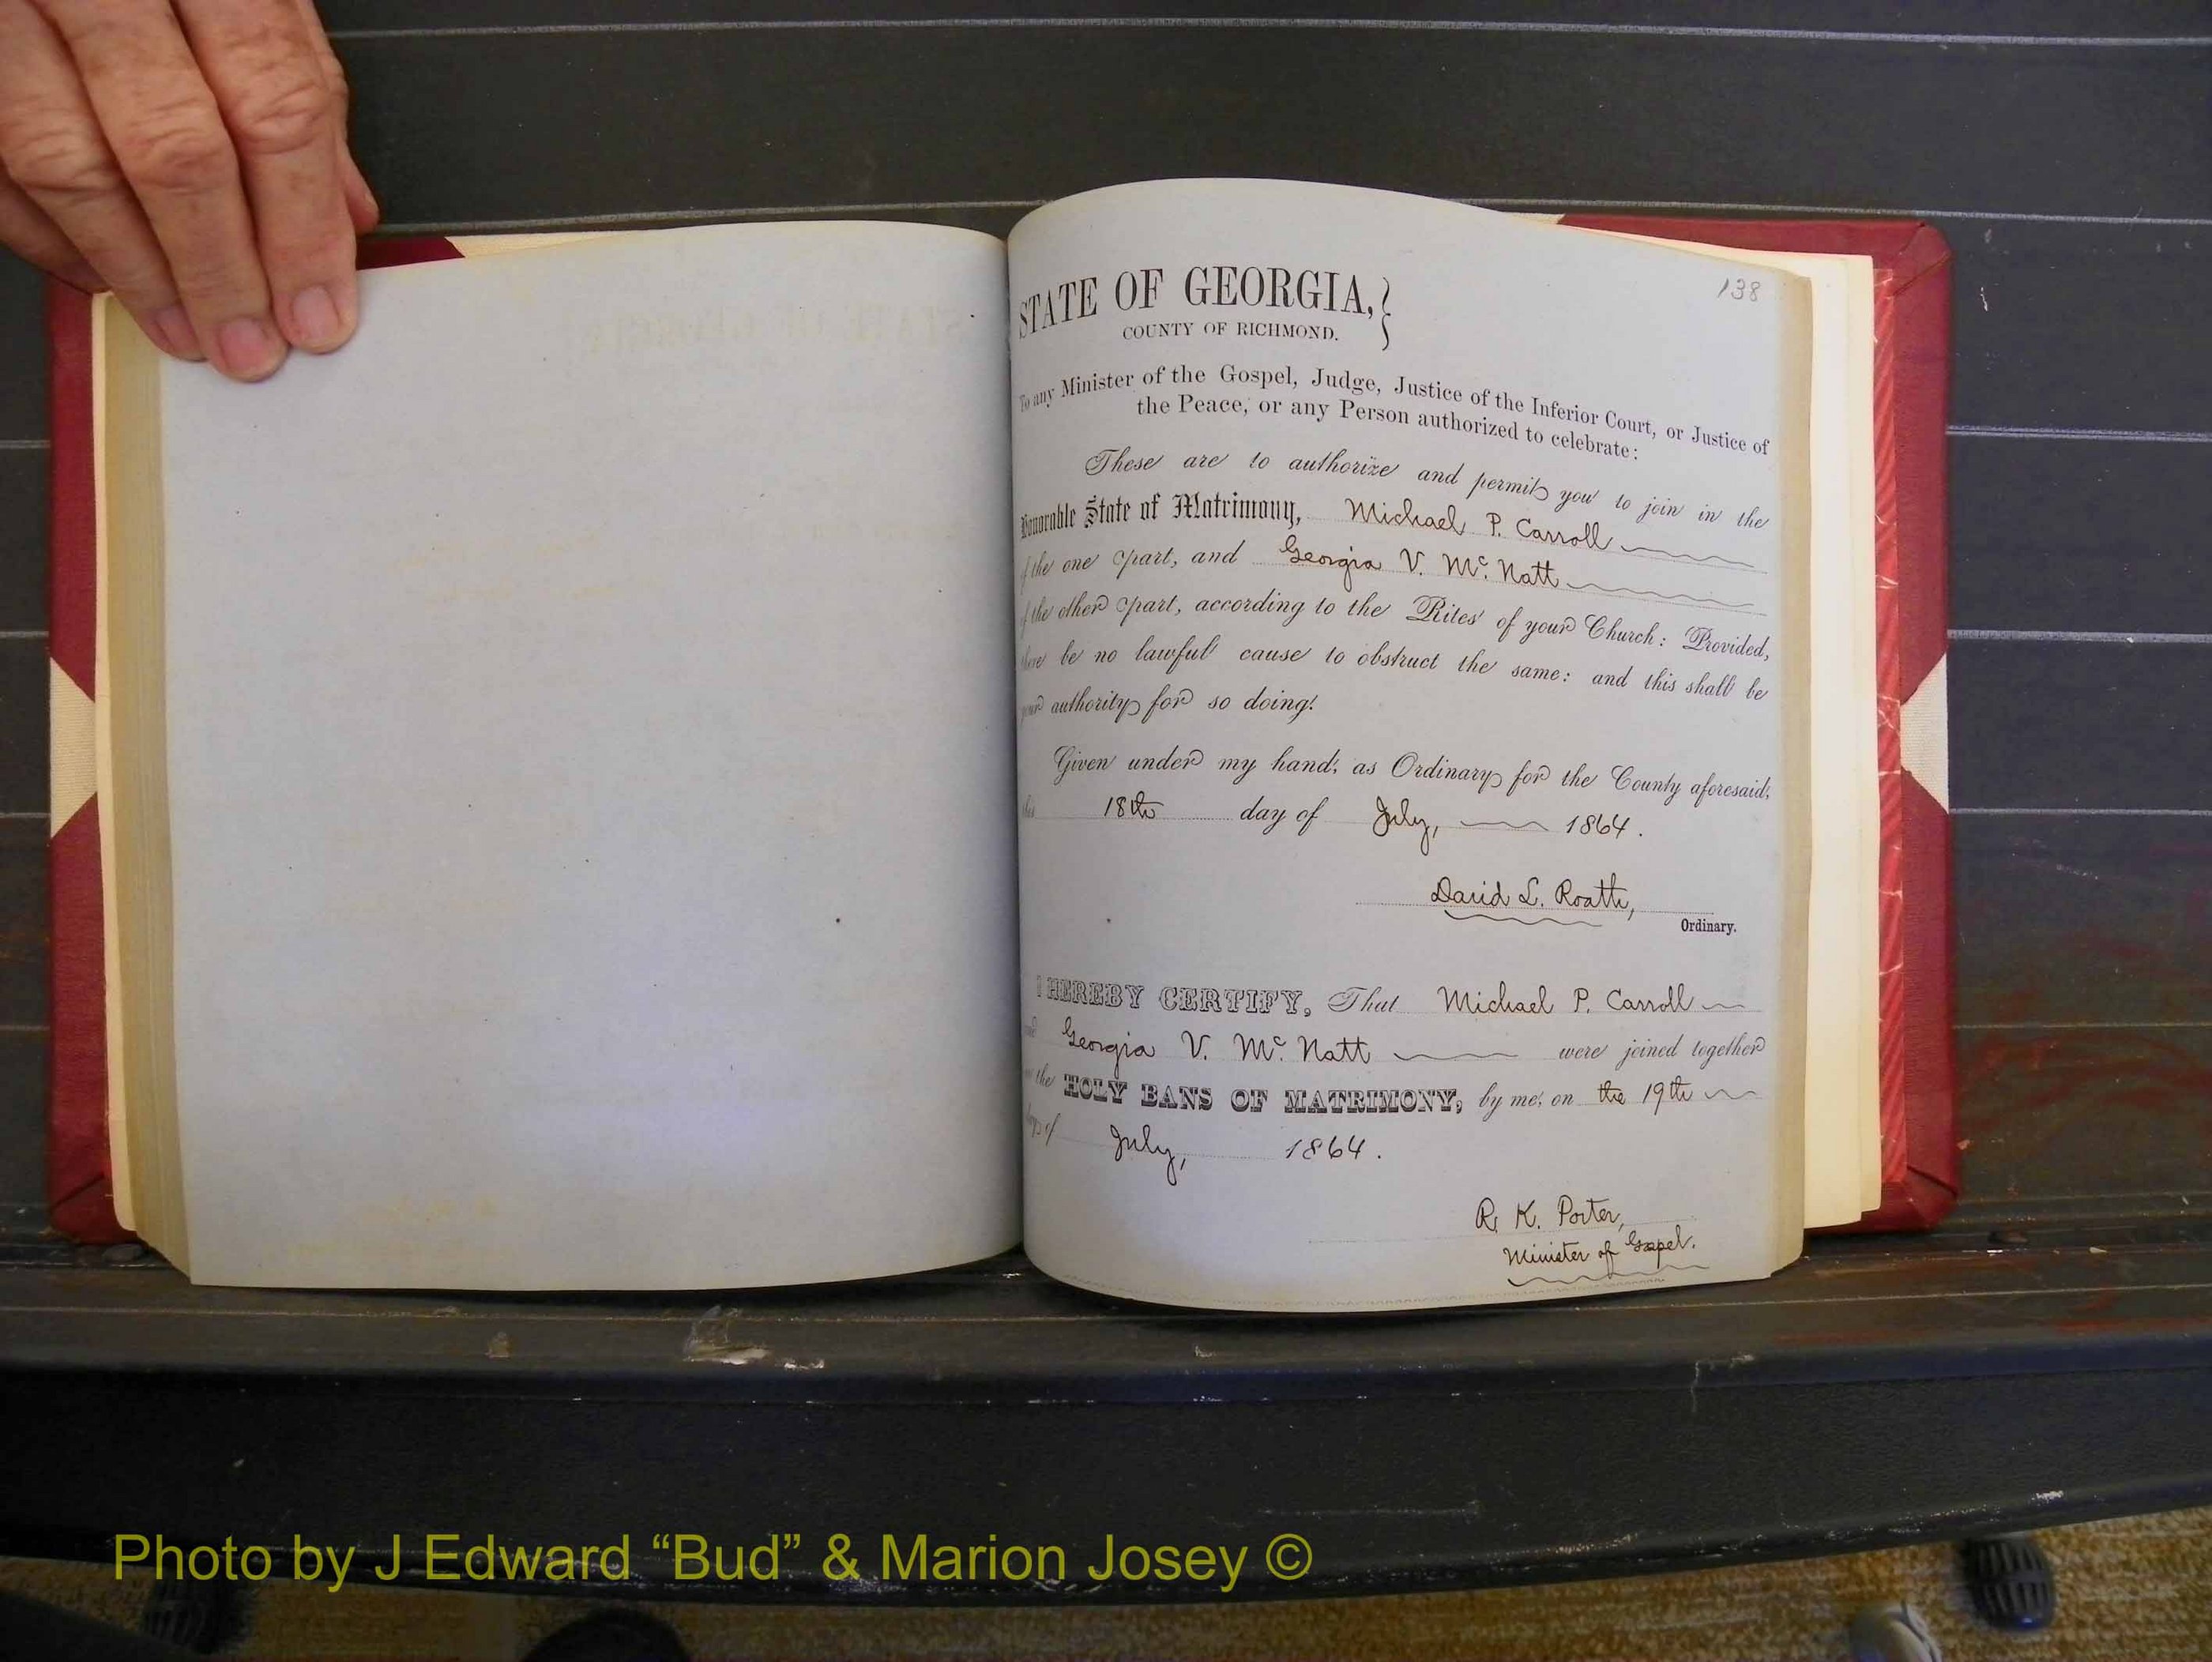 138
STATE OF GEORGIA,}
COUNTY OF RICHMOND.
To any Minister of the Gospel, Judge, Justice of the Inferior Court, or Justice of
the Peace, or any Person authorized to celebrate:
These are to authorize and permit you to join in the
Honorable State of Matrimony, Michael P. Carroll
of the one part, and Georgia V. Mc. Natt
of the other part, according to the Rites of your Church: Provided,
there be no lawful cause to obstruct the same: and this shall be
your authority for so doing.
Given under my hand, as Ordinary for the County aforesaid,
this 18th day of July, 1864.
David L. Roath,
Ordinary.
I HEREBY CERTIFY, That Michael P. Carroll
and Georgia V. Mc. Natt were joined together
the HOLY BANS OF MATRIMONY, by me, on the 19th
day of July, 1864.
R. K. Porter,
Minister of Gospel.
Photo by J Edward “Bud” & Marion Josey ©